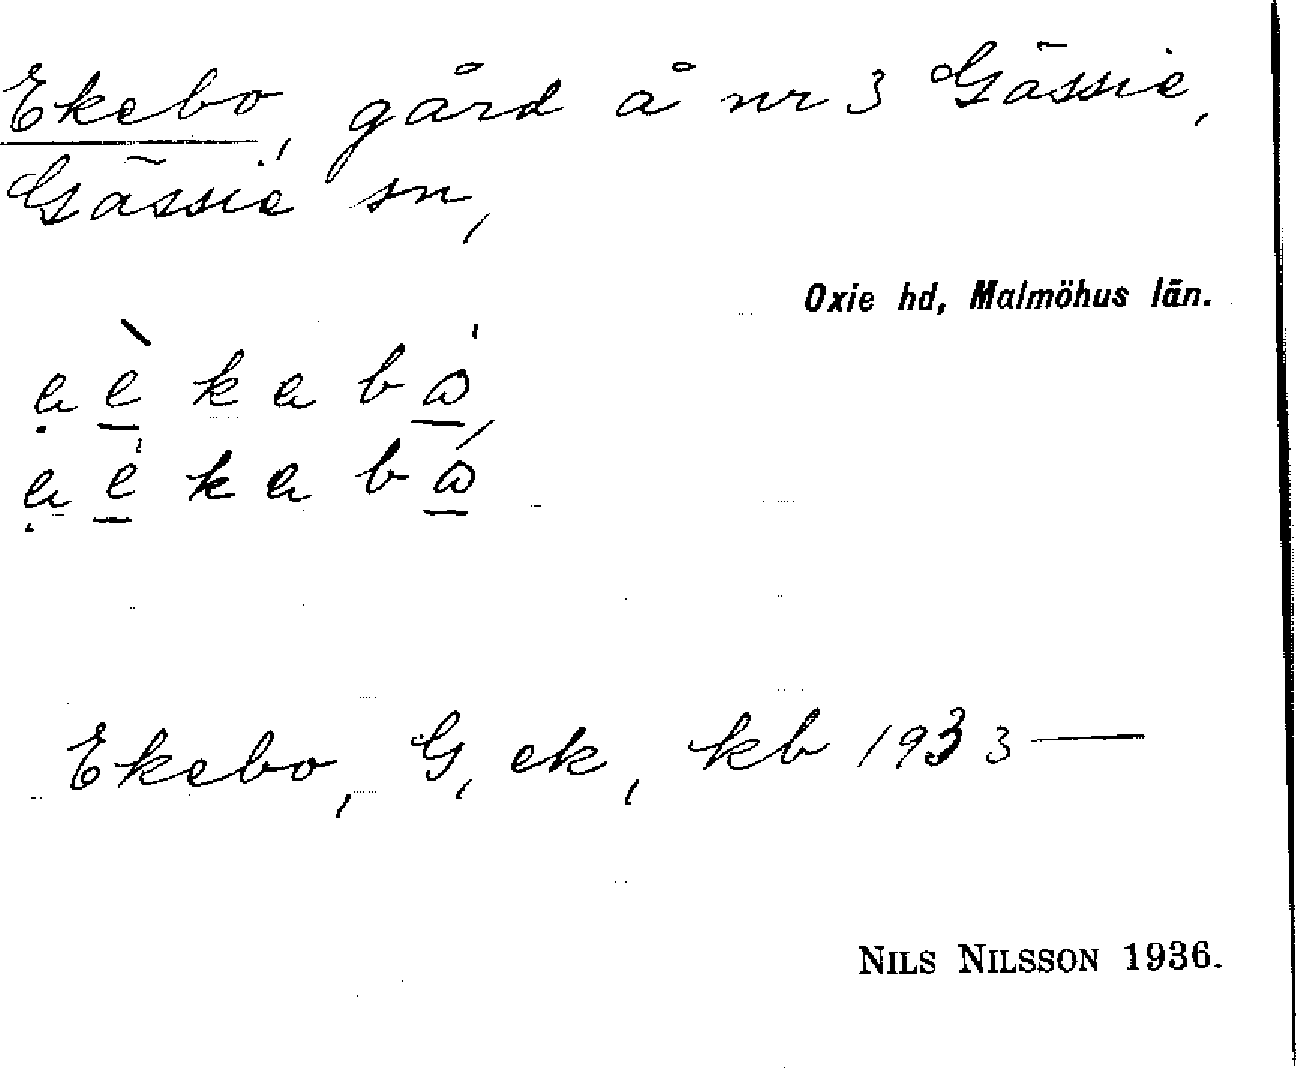 Ekebo, gård å nr 3 Gässie,
Gässie sn,
Oxie hd, Malmöhus län.
Ekebo, G, ek, kb 1933—
NILS NILSSON 1936.